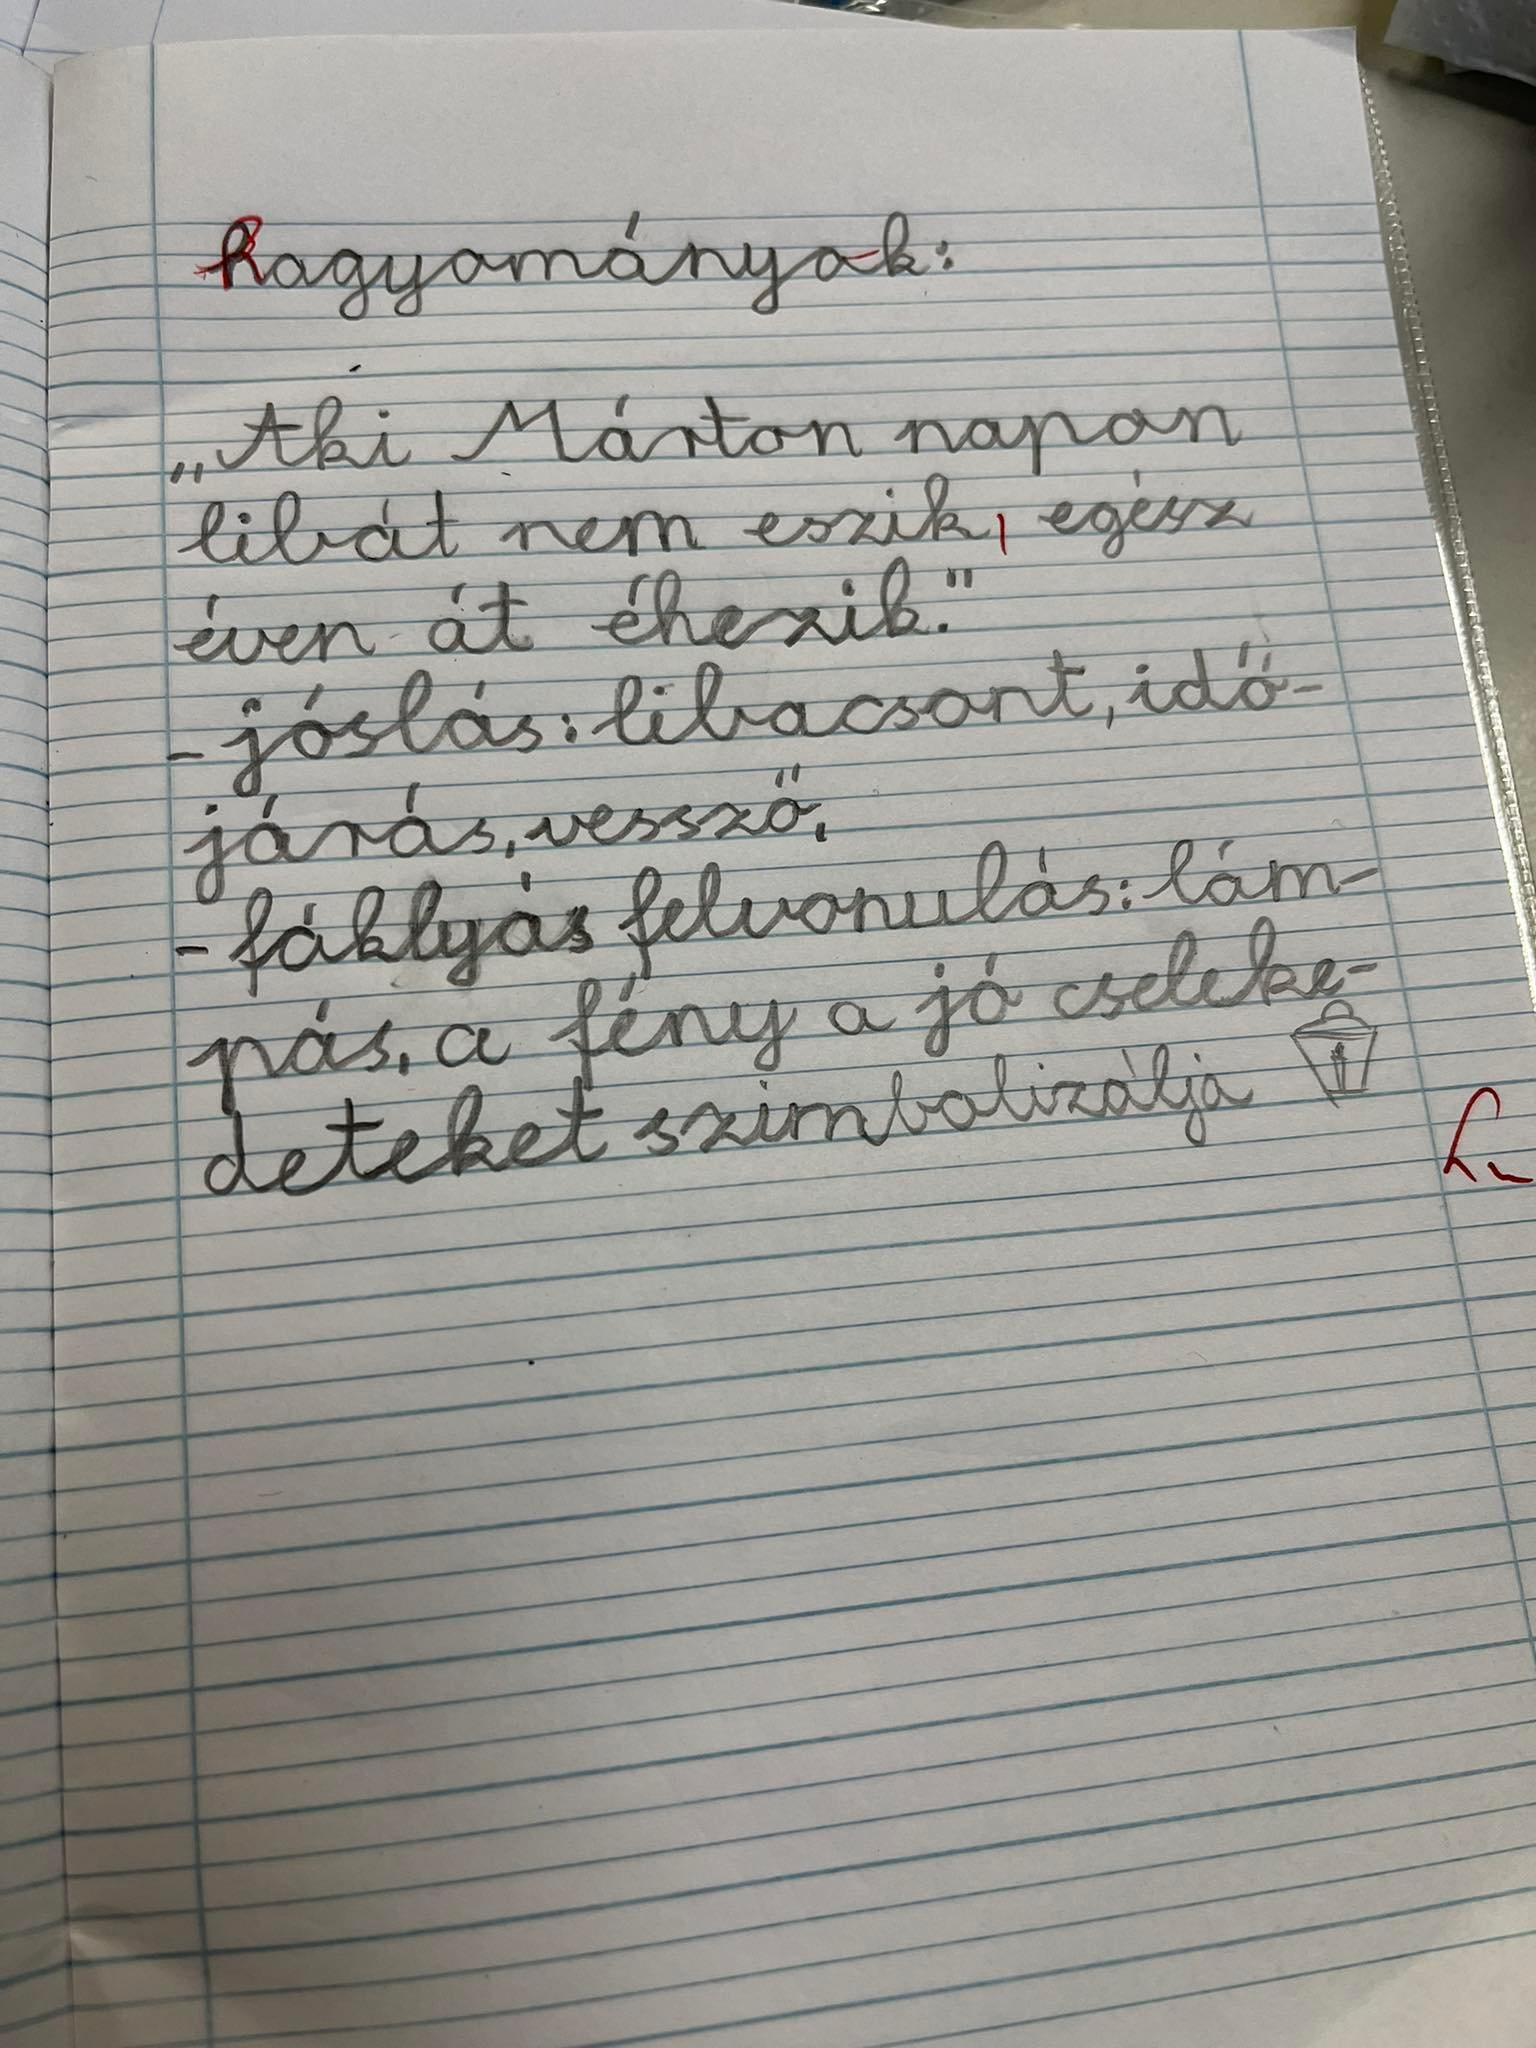 hagyományok:
„Aki Márton napon
libát nem eszik, egész
éven át éhezik."
- jóslás: libacsont, idő-
járás, vessző,
- fáklyás felvonulás: lám-
pás, a fény a jó cseleke-
deteket szimbolizálja